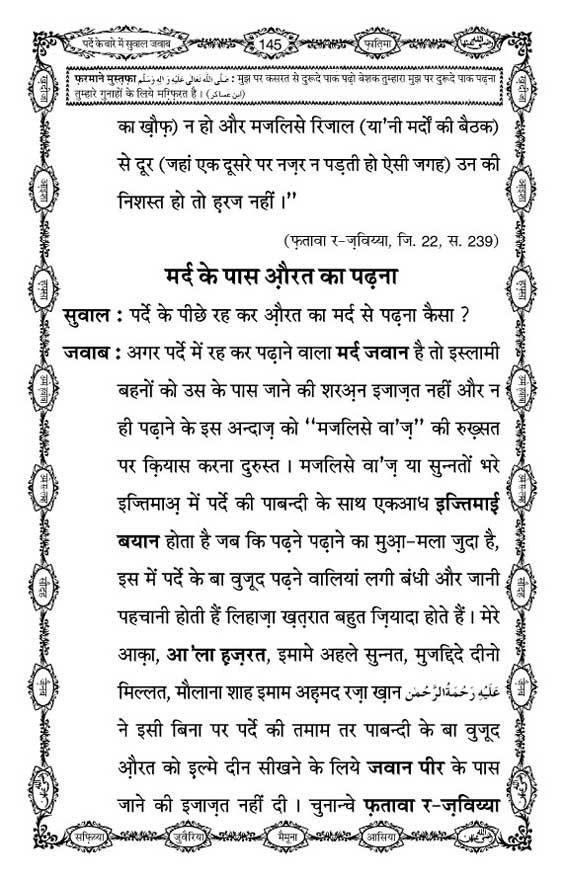 पर्दे के बारे में सुवाल जवाब
145
फ़ातिमा
फ़रमाने मुस्तफ़ा صَلَّى اللهُ تَعَالٰى عَلَيْهِ وَاٰلِهٖ وَسَلَّم : मुझ पर कसरत से दुरूदे पाक पढ़ो बेशक तुम्हारा मुझ पर दुरूदे पाक पढ़ना
तुम्हारे गुनाहों के लिये मग़्फ़िरत है । (ابن عساکر)
का ख़ौफ़) न हो और मजलिसे रिजाल (या'नी मर्दों की बैठक)
से दूर (जहां एक दूसरे पर नज़र न पड़ती हो ऐसी जगह) उन की
निशस्त हो तो हरज नहीं ।”
(फ़तावा र-ज़विय्या, जि. 22, स. 239)
मर्द के पास औ़रत का पढ़ना
सुवाल : पर्दे के पीछे रह कर औ़रत का मर्द से पढ़ना कैसा ?
जवाब : अगर पर्दे में रह कर पढ़ाने वाला मर्द जवान है तो इस्लामी
बहनों को उस के पास जाने की शरअ़न इजाज़त नहीं और न
ही पढ़ाने के इस अन्दाज़ को “मजलिसे वा'ज़” की रुख़्सत
पर क़ियास करना दुरुस्त । मजलिसे वा'ज़ या सुन्नतों भरे
इज्तिमाअ़ में पर्दे की पाबन्दी के साथ एकआध इज्तिमाई
बयान होता है जब कि पढ़ने पढ़ाने का मुआ़-मला जुदा है,
इस में पर्दे के बा वुजूद पढ़ने वालियां लगी बंधी और जानी
पहचानी होती हैं लिहाज़ा ख़त़रात बहुत ज़ियादा होते हैं । मेरे
आक़ा, आ'ला ह़ज़रत, इमामे अहले सुन्नत, मुजद्दिदे दीनो
मिल्लत, मौलाना शाह इमाम अह़मद रज़ा ख़ान عَلَيْهِ رَحْمَةُ الرَّحْمٰن
ने इसी बिना पर पर्दे की तमाम तर पाबन्दी के बा वुजूद
औ़रत को इल्मे दीन सीखने के लिये जवान पीर के पास
जाने की इजाज़त नहीं दी । चुनान्चे फ़तावा र-ज़विय्या
सफ़िय्या
जुवैरिया
मैमूना
आसिया